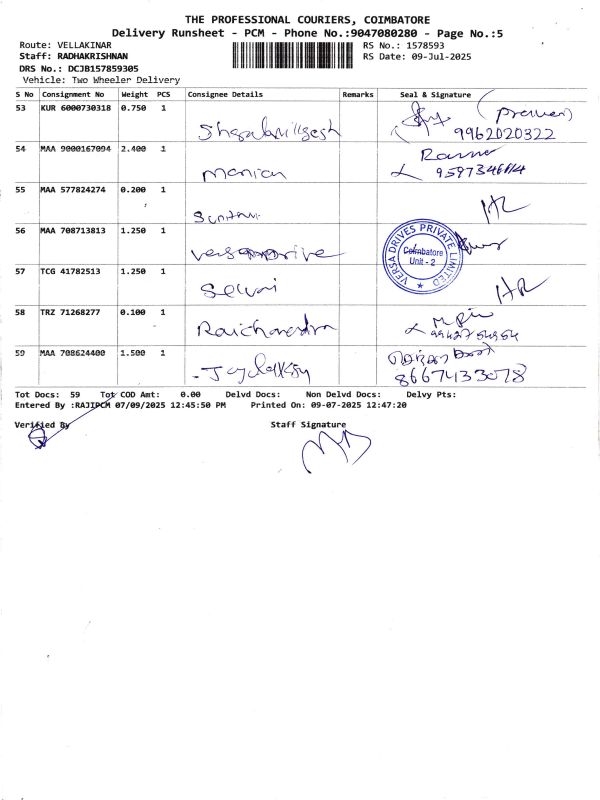 THE PROFESSIONAL COURIERS, COIMBATORE
Delivery Runsheet - PCM - Phone No.:9047080280 - Page No.:5
Route: VELLAKINAR
RS No.: 1578593
Staff: RADHAKRISHNAN
RS Date: 09-Jul-2025
DRS No.: DCJB157859305
Vehicle: Two Wheeler Delivery
S No Consignment No Weight PCS Consignee Details Remarks Seal & Signature
53 KUR 6000730318 0.750 1
9962020322
54 MAA 9000167094 2.400 1
Manian
55 MAA 577824274 0.200 1
56 MAA 708713813 1.250 1
VERSA DRIVES PRIVATE LIMITED
Coimbatore
Unit - 2
57 TCG 41782513 1.250 1
Selvai
58 TRZ 71268277 0.100 1
59 MAA 708624400 1.500 1
8667433078
Tot Docs: 59 Tot COD Amt: 0.00 Delvd Docs: Non Delvd Docs: Delvy Pts:
Entered By :RAJIPCM 07/09/2025 12:45:50 PM Printed On: 09-07-2025 12:47:20
Verified By Staff Signature